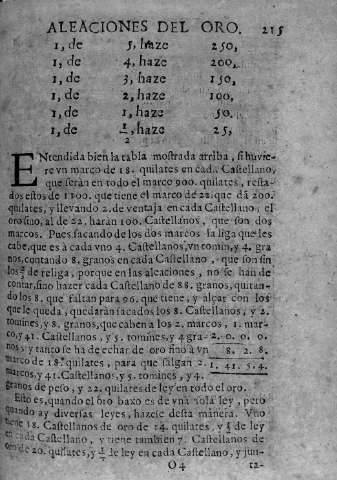 ALEACIONES DEL ORO. 215
1, de 5, haze 250,
1, de 4, haze 200,
1, de 3, haze 150,
1, de 2, haze 100,
1, de 1, haze 50.
1, de 1/2, haze 25,
ENtendida bien la tabla mostrada arriba, si huvie-
re vn marco de 18. quilates en cada Castellano,
que serán en todo el marco 900. quilates, resta-
dos estos de 1100. que tiene el marco de 22. que dá 200.
quilates, y llevando 2. de ventaja en cada Castellano, el
oro fino, al de 22. harán 100. Castellanos, que son dos
marcos. Pues sacando de los dos marcos la liga que les
cabe, que es á cada vno 4. Castellanos, vn tomin, y 4. gra
nos, contando 8. granos en cada Castellano, que son sin
los de religa, porque en las aleaciones, no se han de
contar, sino hazer cada Castellano de 88. granos, quitan-
do los 8. que faltan para 96. que tiene, y alçar con los
que le queda, quedarán sacados los 8. Castellanos, y 2.
tomines, y 8. granos, que caben a los 2. marcos, 1. mar-
co, y 41. Castellanos, y 5. tomines, y 4 gra- 2. 0. 0. 0.
nos, y tanto se ha de echar de oro fino á vn 8. 2. 8.
marco de 18. quilates, para que salgan 2. 1. 41. 5. 4.
marcos, y 41. Castellanos, y 5. tomines, y 4.
granos de peso, y 22. quilates de ley en todo el oro.
Esto es, quando el oro baxo es de vna sola ley, pero
quando ay diversas leyes, hazese desta manera. Vno
tiene 18. Castellanos de oro de 14. quilates, y de ley
en cada Castellano, y tiene tambien 7. Castellanos de
oro de 20. quilates, y de ley en cada Castellano, y jun-
O4 ta-